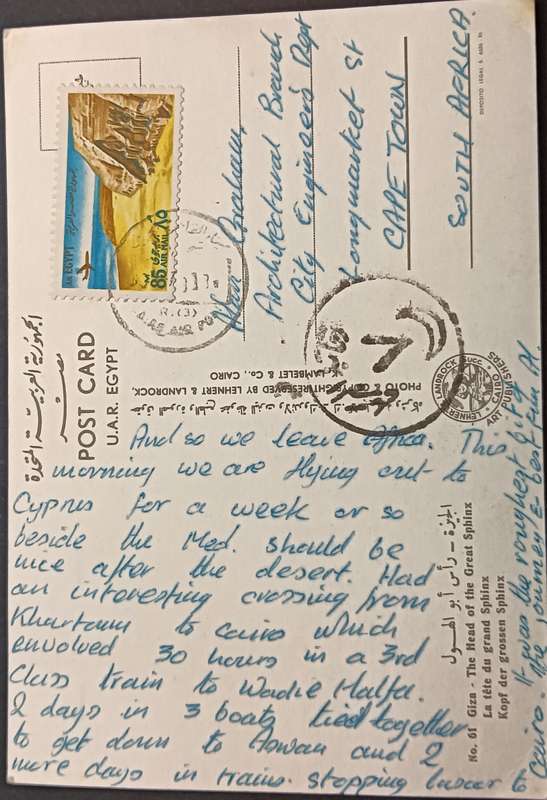 الجمهورية العربية المتحدة
مصر
POST CARD
U.A.R. EGYPT
And so we leave Africa. This
morning we are flying out to
Cyprus for a week or so
beside the Med. Should be
nice after the desert. Had
an interesting crossing from
Khartoum to Cairo which
envolved 30 hours in a 3rd
Class train to Wadie Halfa.
2 days in 3 boats tied together
to get down to Aswan and 2
more days in trains. stopping luxor to
Cairo. It was the roughest part of
the journey &
No. 61 Giza - The Head of the Great Sphinx
La tête du grand Sphinx
Kopf der grossen Sphinx
الجيزة - رأس أبو الهول
PHOTO & COPYRIGHT RESERVED BY LEHNERT & LANDROCK,
K. LAMBELET & Co., CAIRO
LEHNERT & LANDROCK Succ.
ART PUBLISHERS
CAIRO
EGYPT
85 AIR MAIL ٨٥
Graham,
Architectural Branch
City Engineers Dept
Longmarket St
CAPE TOWN
SOUTH AFRICA.